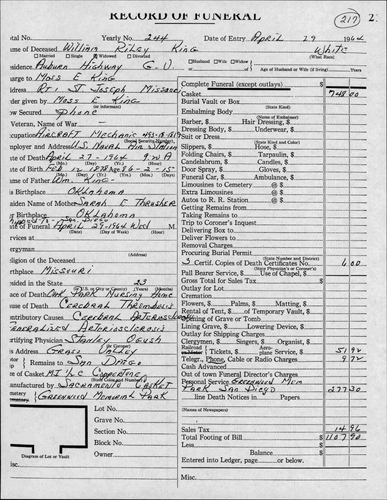 RECORD OF FUNERAL
217 2.
tal No. Yearly No. 244 Date of Entry April 29 1964
me of Deceased William Riley King White
Married Single Widowed Divorced (What Race)
sidence Auburn Highway G.V. Husband Wife Widow Age of Husband or Wife (if living) Years
arge to Moss E King
Rt 1 St Joseph Missouri
rder given by Moss E King
(or informant)
ow Secured Phone
Veteran, Name of War
cupation Aircraft Mechanic
Social Security Number
mployer and Address U.S. Naval Air Station
te of Death April 27-1964 9:00 A
te of Birth Feb 12 1878 86-2-15
(Mo.) (Day) (Yr.) (Age)
me of Father Wm King
s Birthplace Oklahoma
aiden Name of Mother Sarah E Thrasher
r Birthplace Oklahoma
te of Funeral April 29-1964 Wed M.
(Date) (Day of Week) (Hour)
rvices at
(Address)
ergyman
eligion of the Deceased
rthplace Missouri
esided in the State 23
U.S. (City or County) (Years) (Months)
ace of Death Oak Park Nursing Home
use of Death Cerebral Thrombosis
ntributory Causes Cerebral Arteriosclerosis
Generalized Arteriosclerosis
rtifying Physician Stanley
is Address Grass Valley
Remains to San Diego
ze of Casket
(State Color and Number)
anufactured by Sacramento Casket
metery Greenwood Memorial Park
Lot No.
Grave No.
Section No.
Block No.
Owner
Diagram of Lot or Vault
Complete Funeral (except outlays) $
Casket 748 00
Burial Vault or Box
(State Kind)
Embalming Body
(Name of Embalmer)
Barber, $ Hair Dressing, $
Dressing Body, $ Underwear, $
Suit or Dress
(State Kind and Color)
Slippers, $ Hose, $
Folding Chairs, $ Tarpaulin, $
Candelabrum, $ Candles, $
Door Spray, $ Gloves, $
Funeral Car, $ Ambulance, $
Limousines to Cemetery @ $
Extra Limousines @ $
Autos to R. R. Station @ $
Getting Remains from
Taking Remains to
Trip to Coroner's Inquest
Delivering Box to
Deliver Flowers to
Removal Charges
Procuring Burial Permit
(State Number and District)
3 Certif. Copies of Death Certificates No. 6 00
(State Physician's or Coroner's)
Pall Bearer Service, $ Use of Chapel, $
Gross Total for Sales Tax $
Outlay for Lot
Cremation
Flowers, $ Palms, $ Matting, $
Rental of Tent, $ of Temporary Vault, $
Opening of Grave or Tomb
Lining Grave, $ Lowering Device, $
Outlay for Shipping Charges
Clergymen, $ Singers, $ Organist, $
Railroad Tickets, $ Aero-plane Service, $ 51 94
Telegr., Phone, Cable or Radio Charges 9 70
Cash Advanced
Out of town Funeral Director's Charges
Personal Service Greenwood Mem
Park San Diego 277 30
line Death Notices in Papers
(Names of Newspapers)
Sales Tax 14 96
Total Footing of Bill $ 1107 90
Less
Balance $
Entered into Ledger, page or below.
Misc.